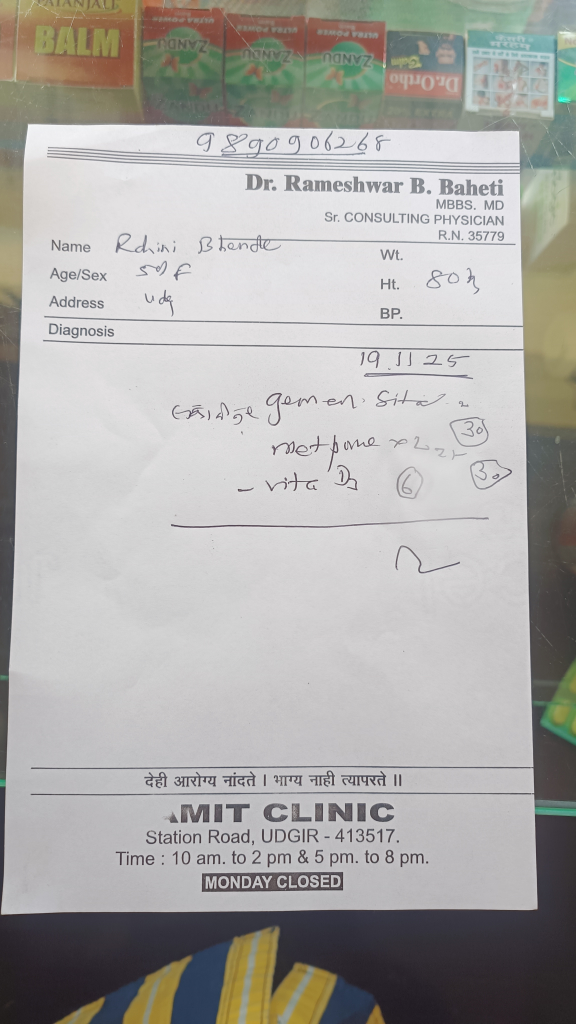 PATANJALI
BALM
ULTRA POWER
ZANDU
ULTRA POWER
ZANDU
ULTRA POWER
ZANDU
Dr.Ortho
9890906268
Dr. Rameshwar B. Baheti
MBBS. MD
Sr. CONSULTING PHYSICIAN
R.N. 35779
Name
Wt.
Age/Sex F
Ht. 80
Address Udg
BP.
Diagnosis
19.11.25
gemen. Sita
30
- vita D3 6 30
देही आरोग्य नांदते । भाग्य नाही त्यापरते ॥
AMIT CLINIC
Station Road, UDGIR - 413517.
Time : 10 am. to 2 pm & 5 pm. to 8 pm.
MONDAY CLOSED